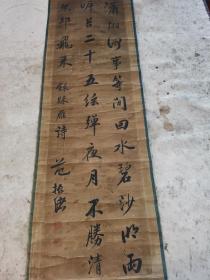 瀟湘何事等閒回水碧沙明兩
岸苔二十五絃彈夜月不勝清
怨却飛來 錄歸雁詩 范振緒